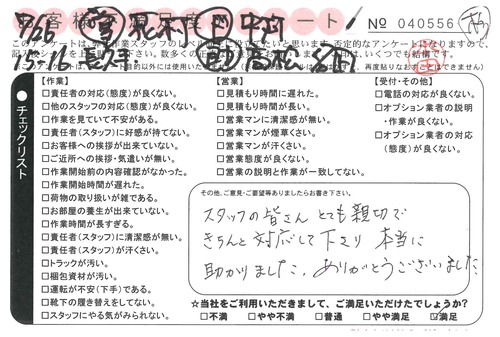 No 040556
チェックリスト
【作業】
□責任者の対応(態度)が良くない。
□他のスタッフの対応(態度)が良くない。
□作業を見ていて不安がある。
□責任者(スタッフ)に好感が持てない。
□お客様への挨拶が出来ていない。
□ご近所への挨拶・気遣いが無い。
□作業開始前の内容確認がなかった。
□作業開始時間が遅れた。
□荷物の取り扱いが雑である。
□お部屋の養生が出来ていない。
□作業時間が長すぎる。
□責任者(スタッフ)に清潔感が無い。
□責任者(スタッフ)が汗くさい。
□トラックが汚い。
□梱包資材が汚い。
□運転が不安(下手)である。
□靴下の履き替えをしてない。
□スタッフにやる気がみられない。
【営業】
□見積もり時間に遅れた。
□見積もり時間が長い。
□営業マンに清潔感が無い。
□営業マンが煙草くさい。
□営業マンが汗くさい。
□営業態度が良くない。
□営業の説明と作業が一致してない。
【受付・その他】
□電話の対応が良くない。
□オプション業者の説明
・作業が良くない。
□オプション業者の対応
(態度)が良くない。
その他、ご意見・ご要望等ありましたらお書き下さい。
スタッフの皆さん とても親切で
きちんと対応して下さり 本当に
助かりました。ありがとうございました。
☆当社をご利用いただきまして、ご満足いただけたでしょうか?
□不満 □やや不満 □普通 □やや満足 ☑満足